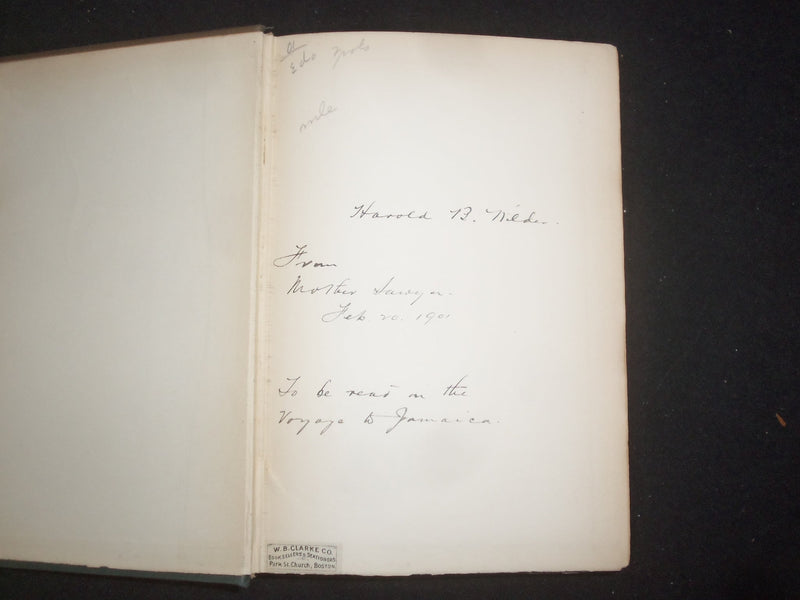 Harold B. Wilder.
From
Mother Sawyer.
Feb. 20. 1901
To be read on the
Voyage to Jamaica.
W. B. CLARKE CO.
BOOKSELLERS & STATIONERS
PARK ST. CHURCH, BOSTON.